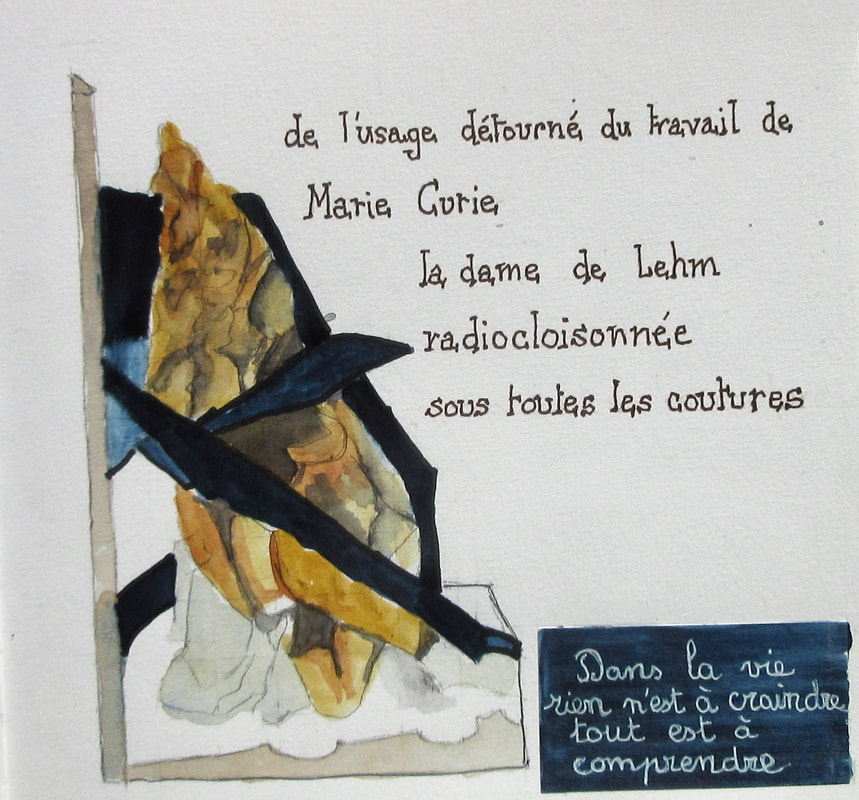 de l'usage détourné du travail de
Marie Curie
la dame de Lehm
radiocloisonnée
sous toutes les coutures
Dans la vie
rien n'est à craindre
tout est à
comprendre